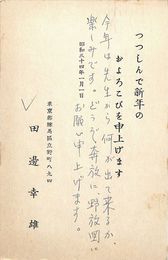 つつしんで新年の
およろこびを申上げます
今年は先生から何が出て来るか、
楽しみです。どうぞ奔放に、野放図に
お願い申上げます。
昭和三十四年一月一日
東京都練馬區立野町八九四
田邊幸雄